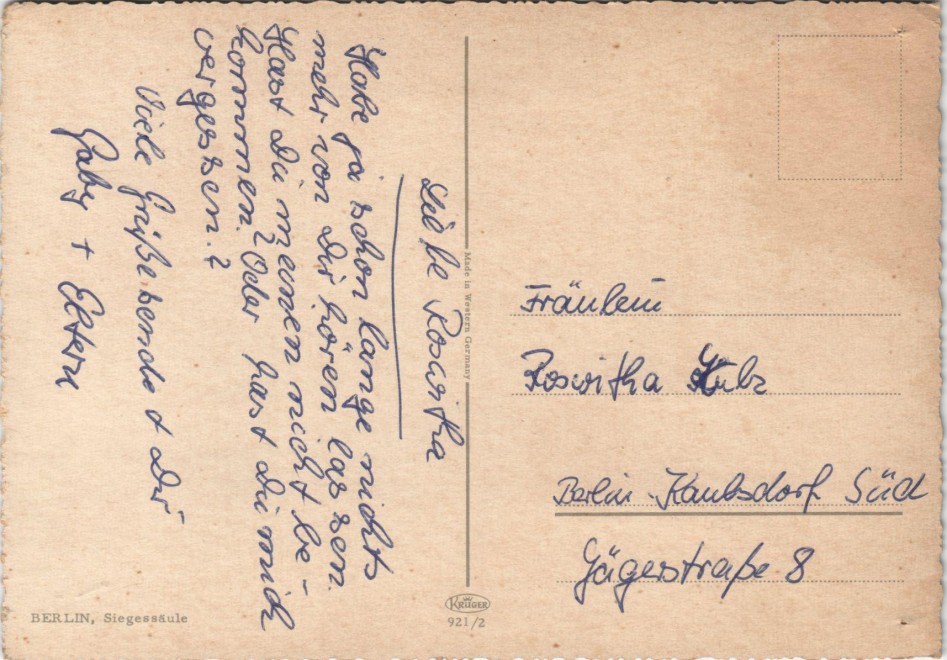 Liebe Roswitha
Habe ja schon lange nichts
mehr von Dir hören lassen.
Hast Du meinen nicht be-
kommen? Oder hast Du mich
vergessen?
Viele Grüße sendet Dir
Gaby + Eltern
Made in Western Germany
Fräulein
Roswitha Kubz
Berlin-Kaulsdorf Süd
Jägerstraße 8
BERLIN, Siegessäule
KRÜGER
921/2